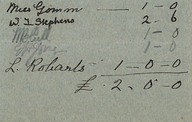 Miss Gomm — 1 - 0
W. J. Stephens 2 - 6
1 - 0
1 - 0
L. Robarts — 1 - 0 - 0
£ 2 - 0 - 0